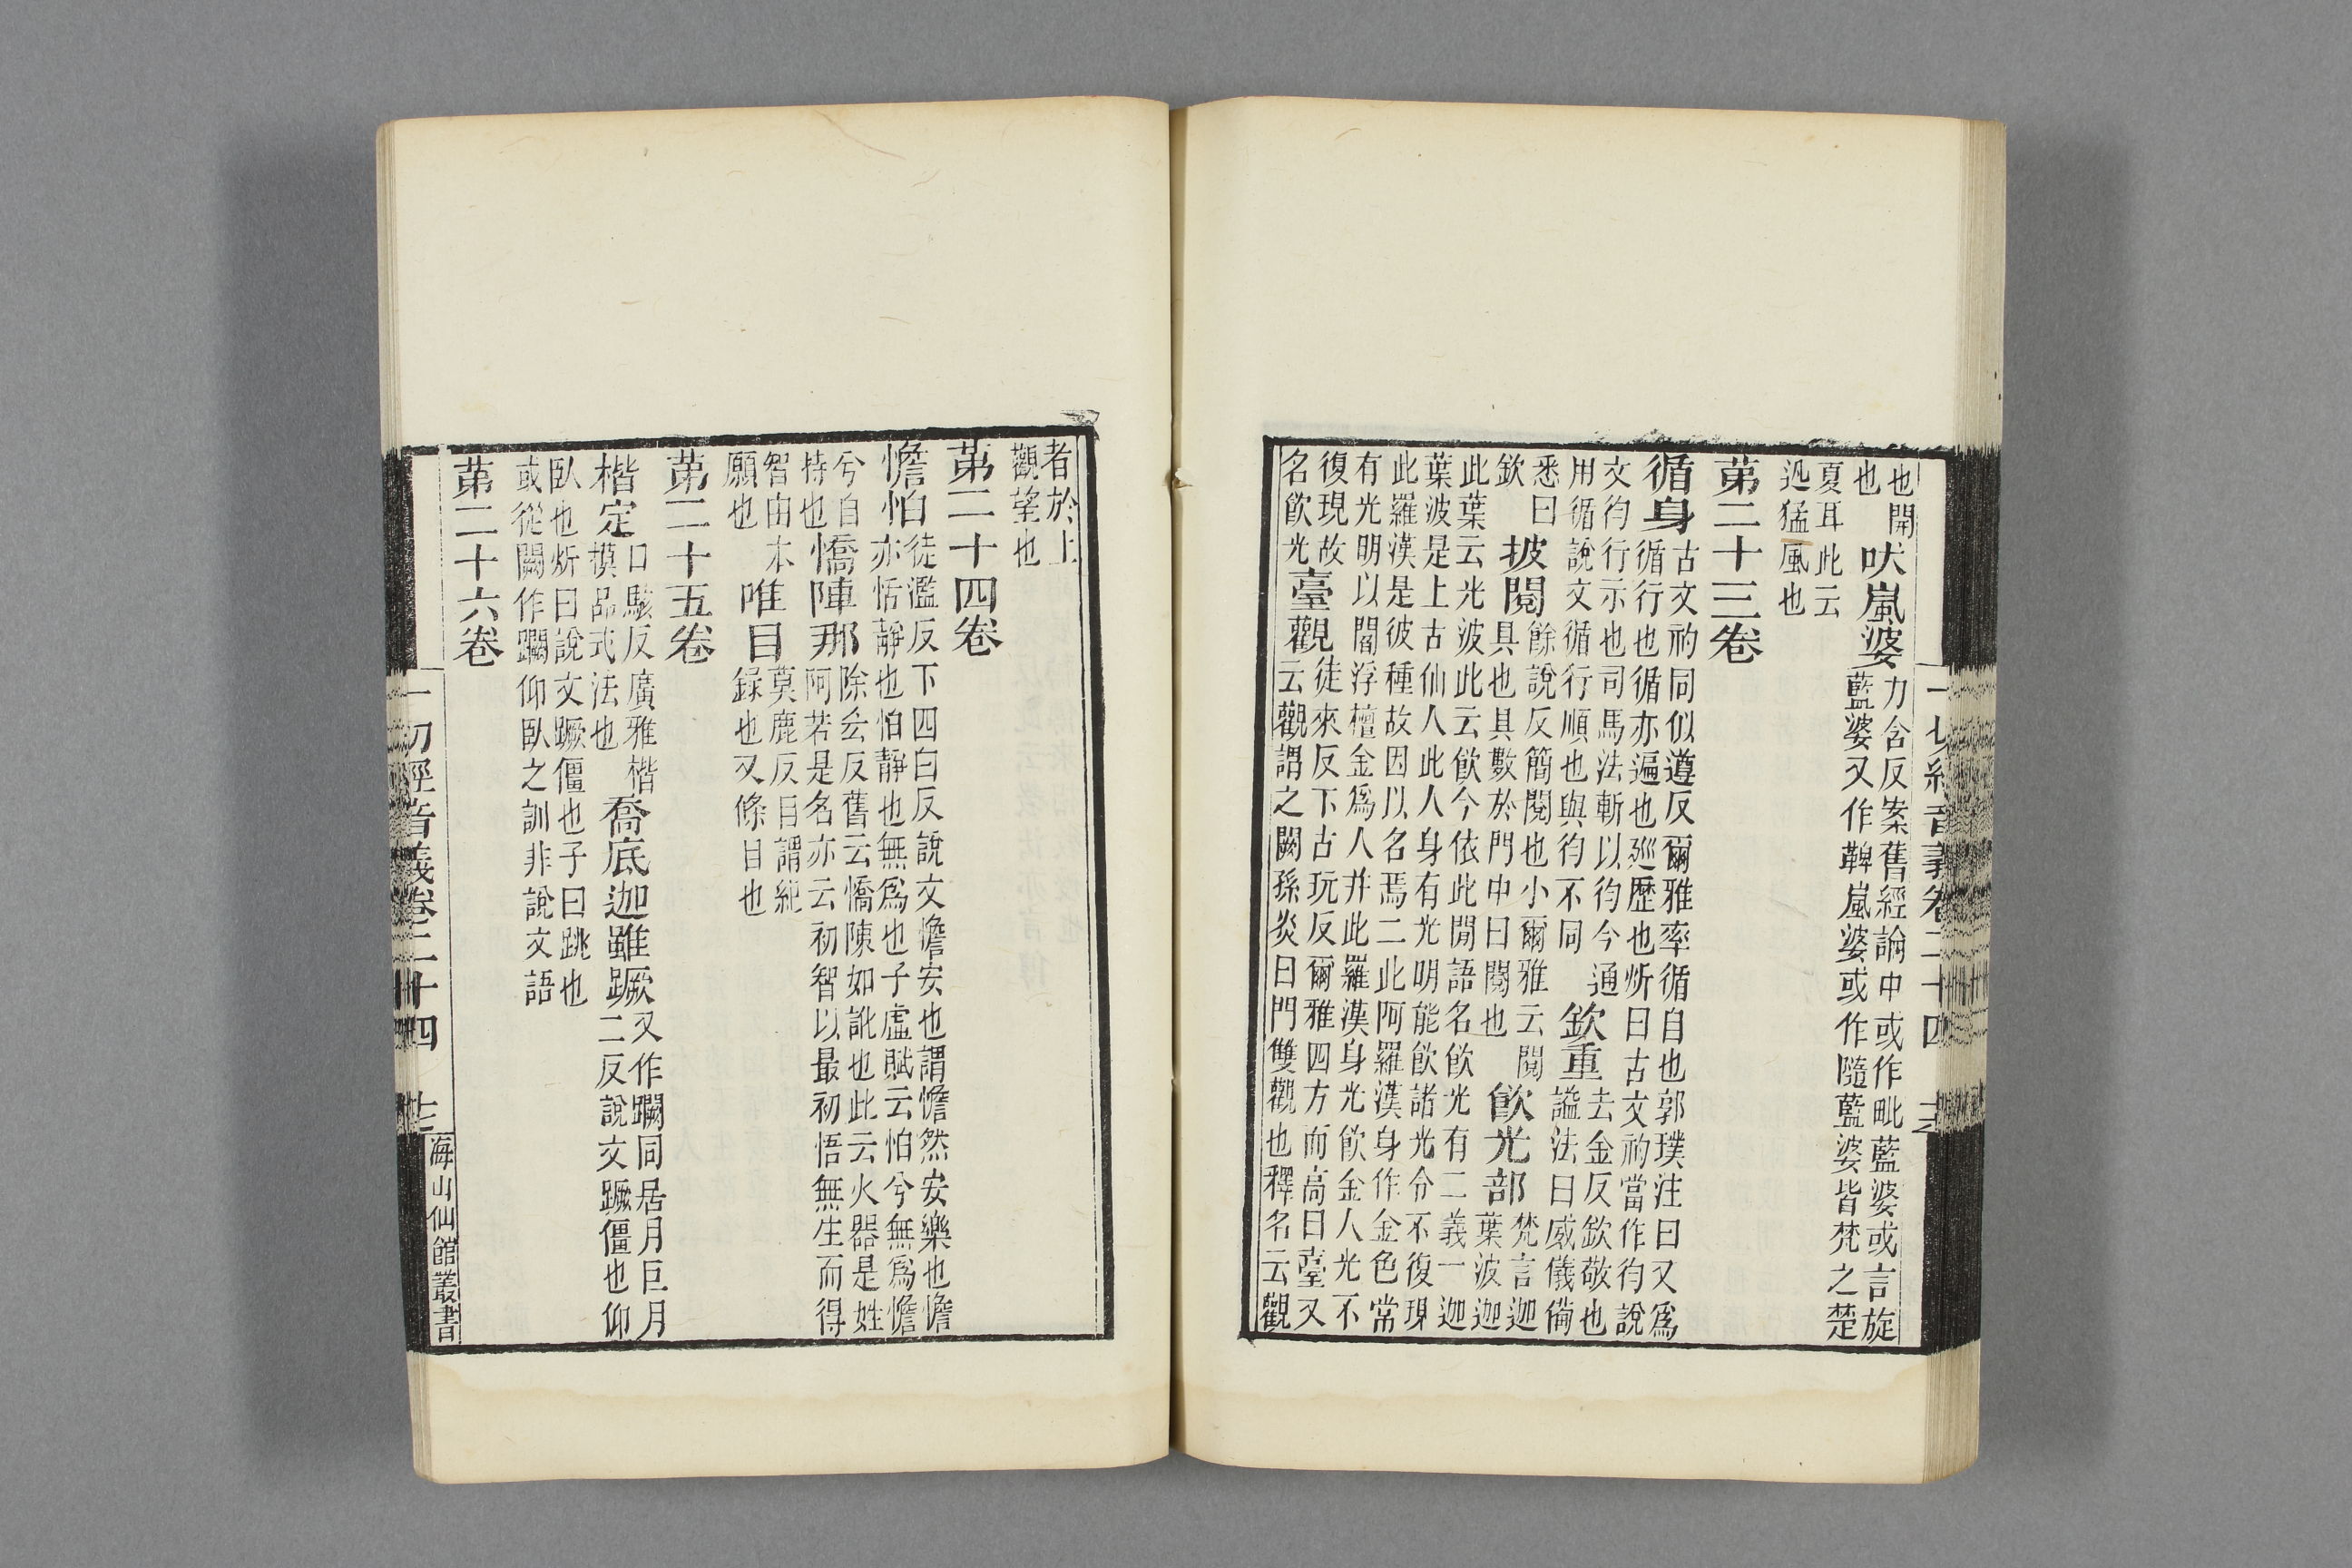 也開
也
吠嵐婆
力含反案舊經論中或作毗藍婆或言旋
藍婆又作鞞嵐婆或作隨藍婆皆梵之楚
夏耳此云
迅猛風也
第二十三卷
循身
古文㣙同似遵反爾雅率循自也郭璞注曰又爲
循行也循亦遍也廵歷也炘曰古文㣙當作䄄說
文䄄行示也司馬法斬以䄄今通
用循說文循行順也與䄄不同
欽重
去金反欽敬也
謚法曰威儀備
悉曰
欽
披閱
餘說反簡閱也小爾雅云閱
具也具數於門中曰閱也
飲光部
梵言迦
葉波迦
此葉云光波此云飲今依此閒語名飲光有二義一迦
葉波是上古仙人此人身有光明能飲諸光令不復現
此羅漢是彼種故因以名焉二此阿羅漢身作金色常
有光明以閻浮檀金爲人并此羅漢身光飲金人光不
復現故
名飲光
臺觀
徒來反下古玩反爾雅四方而高曰臺又
云觀謂之闕孫炎曰門雙觀也釋名云觀
一切經音義卷二十四
者於上
觀望也
第二十四卷
憺怕
徒濫反下四白反說文憺安也謂憺然安樂也憺
亦恬靜也怕靜也無爲也子虛賦云怕兮無爲憺
兮自
持也
憍陣那
除刄反舊云憍陳如訛也此云火器是姓
阿若是名亦云初智以最初悟無生而得
智由本
願也
唯目
莫鹿反目謂紀
録也又條目也
第二十五卷
楷定
口駭反廣雅楷
模品式法也
喬底迦雖蹶
又作𨇮同居月巨月
二反說文蹶僵也仰
臥也炘曰說文蹶僵也子曰跳也
或從闕作𨇮仰臥之訓非說文語
第二十六卷
一切經音義卷二十四
海山仙館叢書